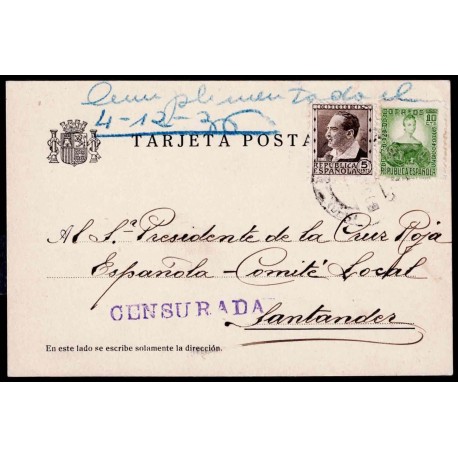 Cumplimentado el
4-12-36
TARJETA POSTA
CORREOS
5 CTS
REPUBLICA
ESPAÑOLA
CORREOS
10
REPUBLICA ESPAÑOLA
Al Sr. Presidente de la Cruz Roja
Española - Comité Local
CENSURADA
Santander
En este lado se escribe solamente la dirección.